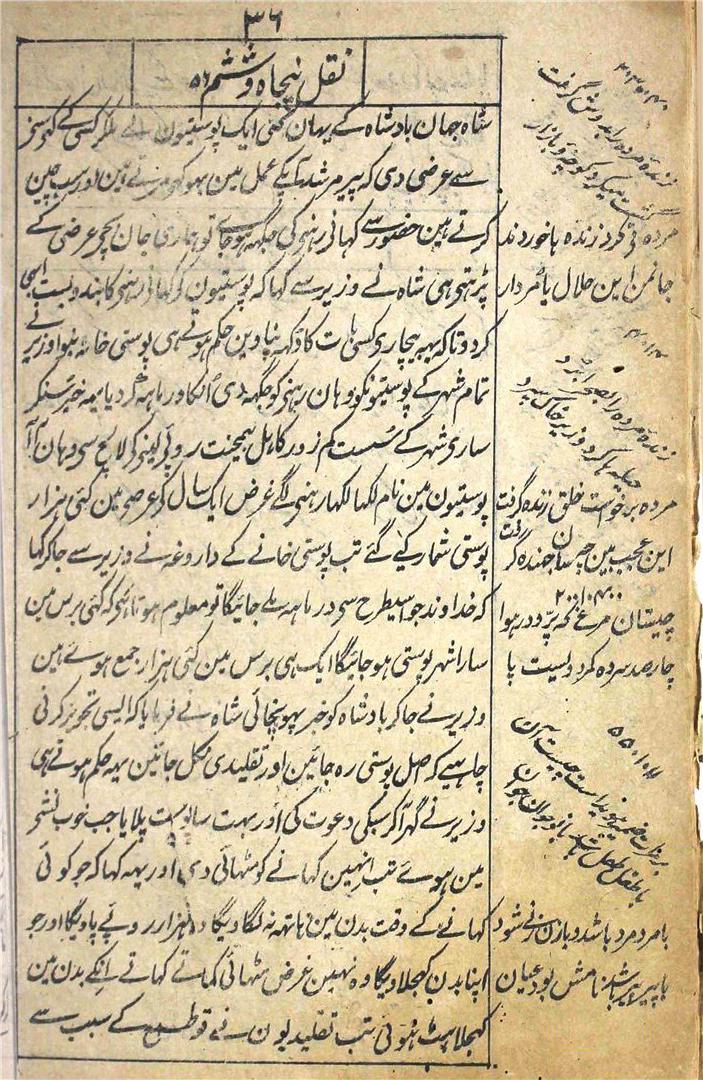 ۳۶
نقل پنجاہ و ششم ۵۶
شاہ جہان بادشاہ کے یہان کئی ایک پوستیون نے ملکر کسی کے
سے عرضی دی کہ پیر مرشد آپکے عمل مین بہوکہو مرتے ہین اور سب چین
کرتے ہین حضور سے کہانی رہنی کی جگہہ ہو جاے تو ہماری جان بچی عرضی کے
پڑہتی ہی شاہ نے وزیر سے کہا کہ پوستیون کو کہانی رہنی کا بندوبست ابہی
کر دو تاکہ یہہ بیچاری کسی بات کا دکہہ نپاوین حکم ہوتے ہی پوستی خانہ بنوا وزیر نے
تمام شہر کے پوستیونکو وہان رہنی کو جگہہ دی اُنکا درماہہ کر دیا یہہ خبر سُنکر
ساری شہر کے سُست کم زور کاہل بیمحنت روپئی لینی کی لالچ سی وہان آ آ
پوستیون مین نام لکہا لکہا رہنی لگے غرض ایک سال کی عرصی مین کئی ہزار
پوستی شمار کیے گئے تب پوستی خانے کے داروغہ نے وزیر سے جاکر کہا
کہ خداوند جو اسیطرح سی درماہہ ملے جائیگا تو معلوم ہوتا ہی کہ کئی برس مین
سارا شہر پوستی ہو جائیگا ایک ہی برس مین کئی ہزار جمع ہوئے ہین
وزیر نے جاکر بادشاہ کو خبر پہونچائی شاہ نے فرمایا کہ ایسی تجویز کرنی
چاہیے کہ اصل پوستی رہ جائین اور تقلیدی نکل جائین یہہ حکم ہوتے ہی
وزیر نے گہر آکر سبکی دعوت کی اور بہت سا پوست پلایا جب خوب نشی
مین ہوے تب اُنہین کہانے کو مٹہائی دی اور یہہ کہا کہ جو کوئی
کہانے کے وقت بدن مین ہاتہہ نہ لگاویگا دو ہزار روپے پاویگا اور جو
اپنا بدن کہجلاویگا وہ نہین غرض مٹہائی کہاتے کہاتے اُنکے بدن مین
کہجلاہٹ ہوئی تب تقلیدیون نے تو طمع کے سبب سے
زندۂ مردہ را بدوش گرفت
گشت میکرد کوچہ و بازار
مردہ نی کرد زندہ ہا خوردند
جانمن این حلال یا مُردار
زندۂ مردہ را بصحرا بُرد
حیلہ ہا کرد و زیر خاک سپرد
مردہ برخواست خلق زندہ گرفت
این عجب بین چہ سان جہندہ گرفت
چیستان مرغ کہ پرّد در ہوا
چارصد سردہ کرد و لیست پا
۵۵۰۱۰۲
با طفل طفل باشد با نوجوان جوان
بامرد مرد باشد و بازن زنی شود
با پیر پیر باشد نامش بود عیان